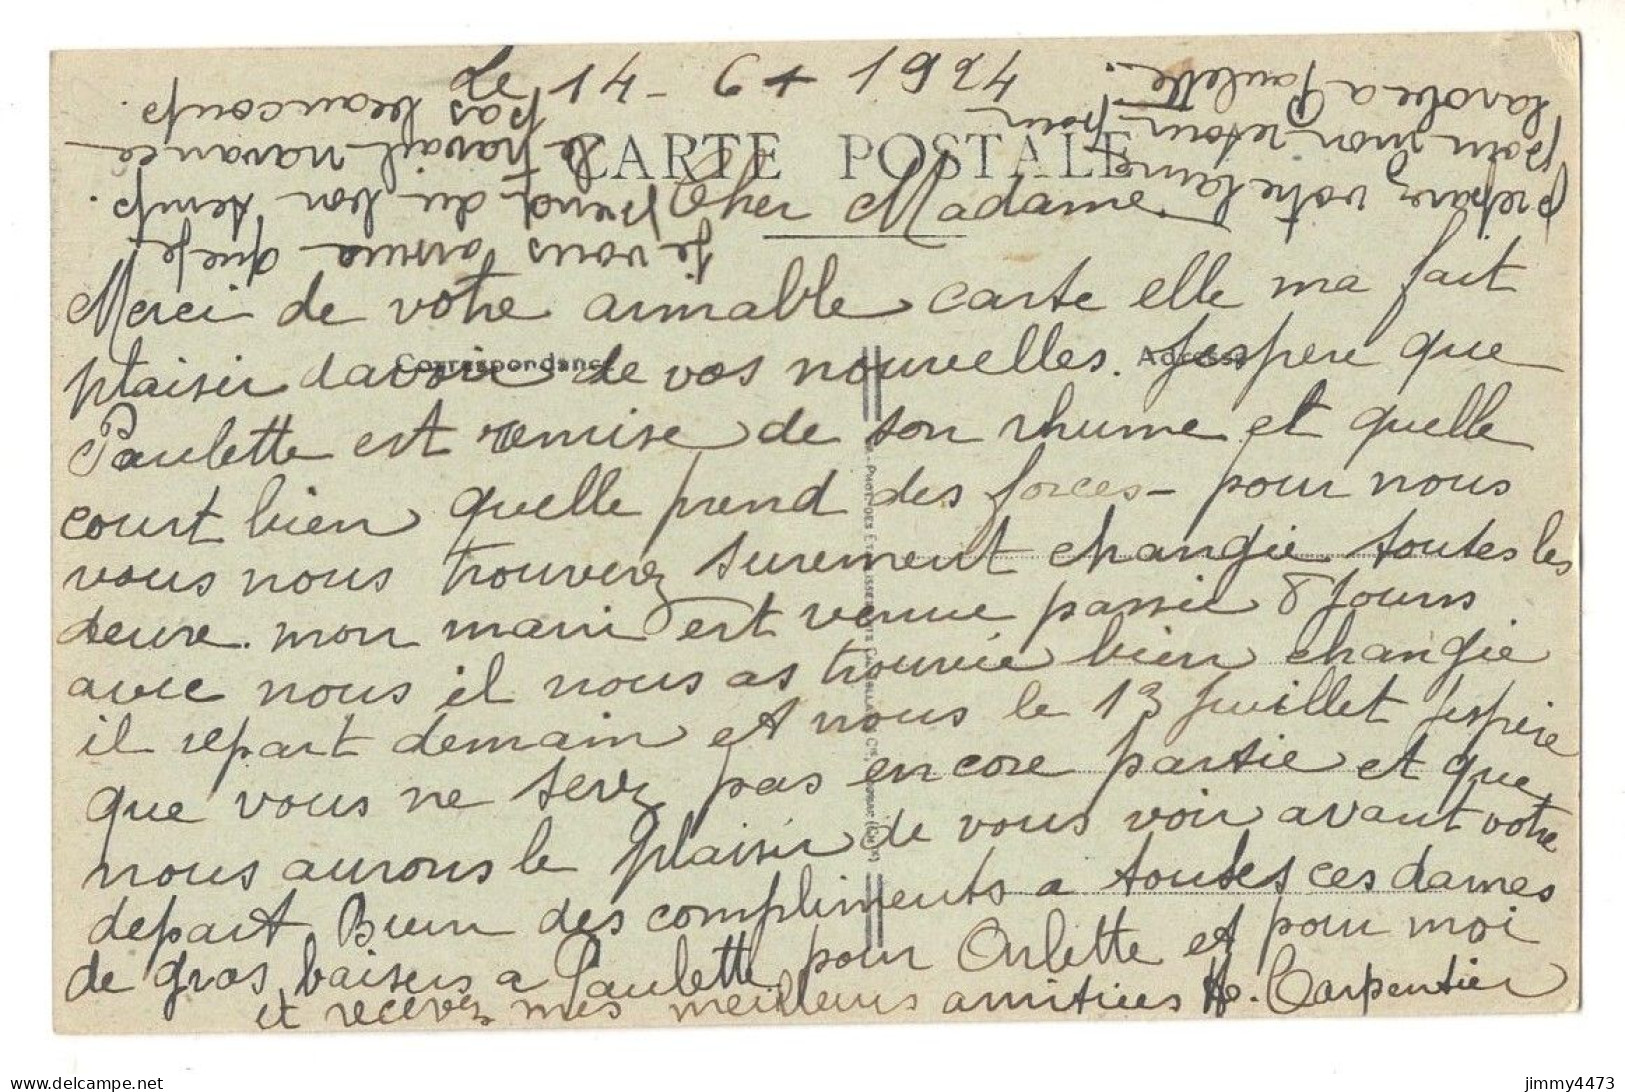 Le 14 - 6 - 1924
CARTE POSTALE
Cher Madame.
Merci de votre aimable carte elle ma fait
Correspondance
Adresse
plaisir davoir de vos nouvelles. Jespere que
Paulette est remise de son rhume et quelle
court bien quelle prend des forces - pour nous
vous nous trouverez surement changée. toutes les
deux. mon mari est venue passée 8 jours
avec nous il nous as trouvée bien changée
il repart demain et nous le 13 Juillet Jespère
que vous ne serez pas encore partie et que
nous aurons le plaisir de vous voir avant votre
depart. Bien des compliments a toutes ces dames
de gros baisers a Paulette pour Arlette et pour moi
et recevez mes meilleurs amitiées H. Carpentier
je vous assure que je
prend du bon temp.
le travail navance
pas beaucoup.
preparez votre laine
pour mon retour pour
la robe a Paulette.